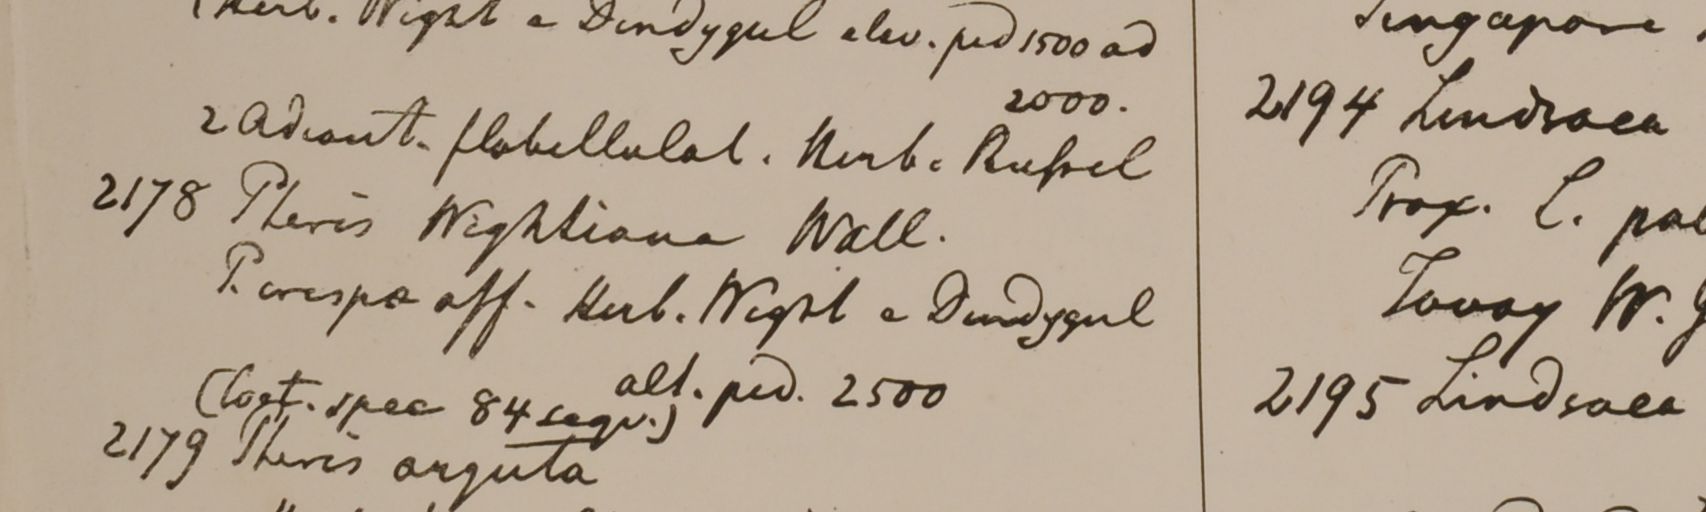 (Herb. Wight e Dindygul elev. ped 1500 ad
2000.
2 Adiant. flabellulat. Herb. Russel
2178 Pteris Wightiana Wall.
P. crespæ aff. Herb. Wight e Dindygul
alt. ped. 2500
(Cat. spec 84 sequ.)
2179 Pteris arguta
Singapore
2194 Lindsaea
Prox. L.
Tavoy W.
2195 Lindsaea